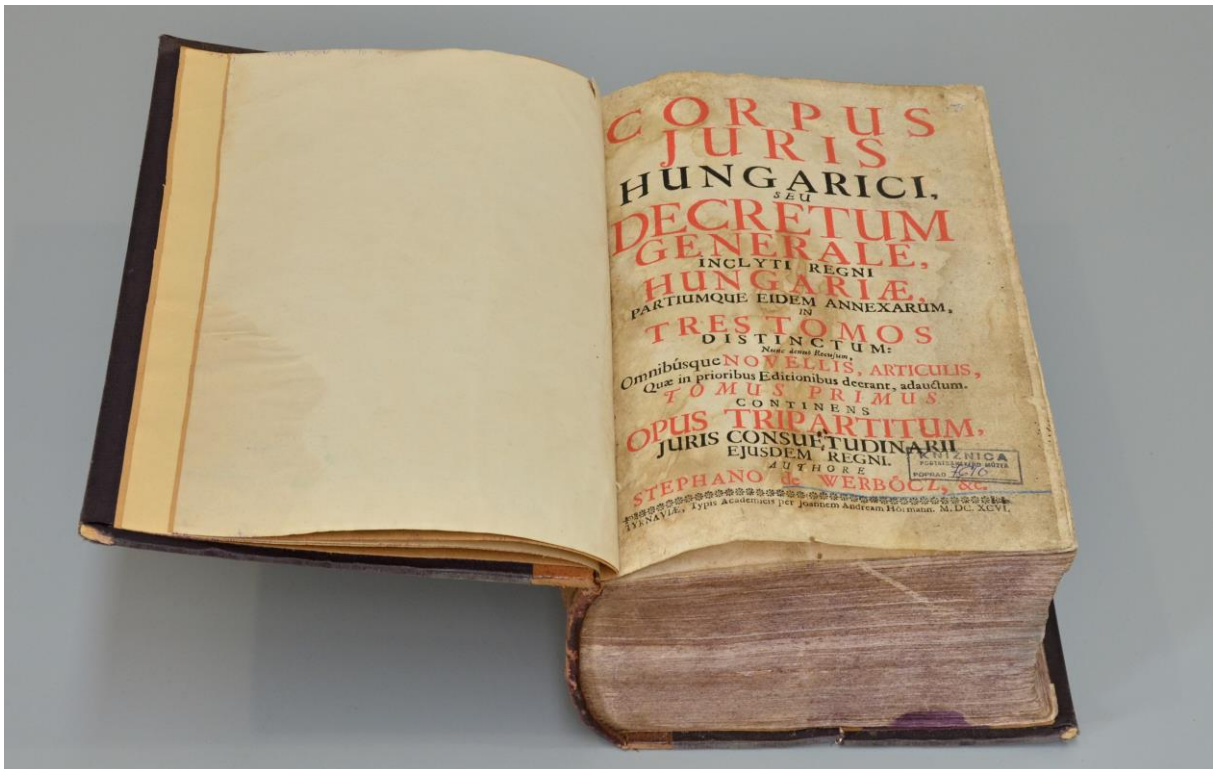 CORPUS
JURIS
HUNGARICI,
SEU
DECRETUM
GENERALE,
INCLYTI REGNI
HUNGARIÆ,
PARTIUMQUE EIDEM ANNEXARUM,
IN
TRES TOMOS
DISTINCTUM:
Nunc denuò Recusum,
Omnibúsque NOVELLIS, ARTICULIS,
Quæ in prioribus Editionibus deerant, adauctum.
TOMUS PRIMUS
CONTINENS
OPUS TRIPARTITUM,
JURIS CONSUETUDINARII
EJUSDEM REGNI.
AUTHORE
STEPHANO de WERBŐCZ, &c.
KNIŽNICA
PODTATRANSKÉHO MÚZEA
POPRAD 7690
TYRNAVIÆ, Typis Academicis per Joannem Andream Hörmann. M.DC.XCVI.